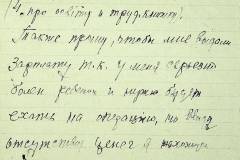 4. про освіту и труд.книжку!
Также прошу, чтобы мне выдали
зарплату т.к. у меня серьезно
болен ребенок и нужно будет
ехать на операцию, но ввиду
отсутствия денег я